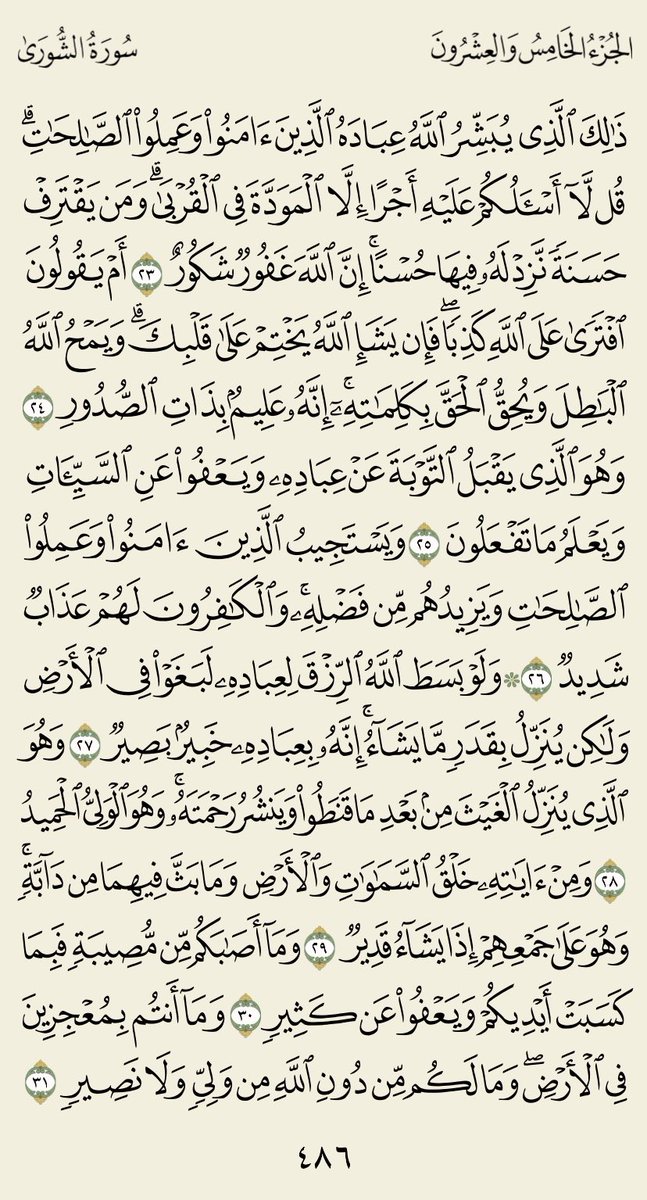 الجُزْءُ الخَامِسُ وَالعِشْرُونَ سُورَةُ الشُّورَىٰ
ذَٰلِكَ ٱلَّذِى يُبَشِّرُ ٱللَّهُ عِبَادَهُ ٱلَّذِينَ ءَامَنُوا۟ وَعَمِلُوا۟ ٱلصَّـٰلِحَـٰتِ ۗ
قُل لَّآ أَسْـَٔلُكُمْ عَلَيْهِ أَجْرًا إِلَّا ٱلْمَوَدَّةَ فِى ٱلْقُرْبَىٰ ۗ وَمَن يَقْتَرِفْ
حَسَنَةً نَّزِدْ لَهُۥ فِيهَا حُسْنًا ۚ إِنَّ ٱللَّهَ غَفُورٌ شَكُورٌ ٢٣ أَمْ يَقُولُونَ
ٱفْتَرَىٰ عَلَى ٱللَّهِ كَذِبًا ۖ فَإِن يَشَإِ ٱللَّهُ يَخْتِمْ عَلَىٰ قَلْبِكَ ۗ وَيَمْحُ ٱللَّهُ
ٱلْبَـٰطِلَ وَيُحِقُّ ٱلْحَقَّ بِكَلِمَـٰتِهِۦٓ ۚ إِنَّهُۥ عَلِيمٌۢ بِذَاتِ ٱلصُّدُورِ ٢٤
وَهُوَ ٱلَّذِى يَقْبَلُ ٱلتَّوْبَةَ عَنْ عِبَادِهِۦ وَيَعْفُوا۟ عَنِ ٱلسَّيِّـَٔاتِ
وَيَعْلَمُ مَا تَفْعَلُونَ ٢٥ وَيَسْتَجِيبُ ٱلَّذِينَ ءَامَنُوا۟ وَعَمِلُوا۟
ٱلصَّـٰلِحَـٰتِ وَيَزِيدُهُم مِّن فَضْلِهِۦ ۚ وَٱلْكَـٰفِرُونَ لَهُمْ عَذَابٌ
شَدِيدٌ ٢٦ ۞ وَلَوْ بَسَطَ ٱللَّهُ ٱلرِّزْقَ لِعِبَادِهِۦ لَبَغَوْا۟ فِى ٱلْأَرْضِ
وَلَـٰكِن يُنَزِّلُ بِقَدَرٍ مَّا يَشَآءُ ۚ إِنَّهُۥ بِعِبَادِهِۦ خَبِيرٌۢ بَصِيرٌ ٢٧ وَهُوَ
ٱلَّذِى يُنَزِّلُ ٱلْغَيْثَ مِنۢ بَعْدِ مَا قَنَطُوا۟ وَيَنشُرُ رَحْمَتَهُۥ ۚ وَهُوَ ٱلْوَلِىُّ ٱلْحَمِيدُ
٢٨ وَمِنْ ءَايَـٰتِهِۦ خَلْقُ ٱلسَّمَـٰوَٰتِ وَٱلْأَرْضِ وَمَا بَثَّ فِيهِمَا مِن دَآبَّةٍ ۚ
وَهُوَ عَلَىٰ جَمْعِهِمْ إِذَا يَشَآءُ قَدِيرٌ ٢٩ وَمَآ أَصَـٰبَكُم مِّن مُّصِيبَةٍ فَبِمَا
كَسَبَتْ أَيْدِيكُمْ وَيَعْفُوا۟ عَن كَثِيرٍ ٣٠ وَمَآ أَنتُم بِمُعْجِزِينَ
فِى ٱلْأَرْضِ ۖ وَمَا لَكُم مِّن دُونِ ٱللَّهِ مِن وَلِىٍّ وَلَا نَصِيرٍ ٣١
٤٨٦